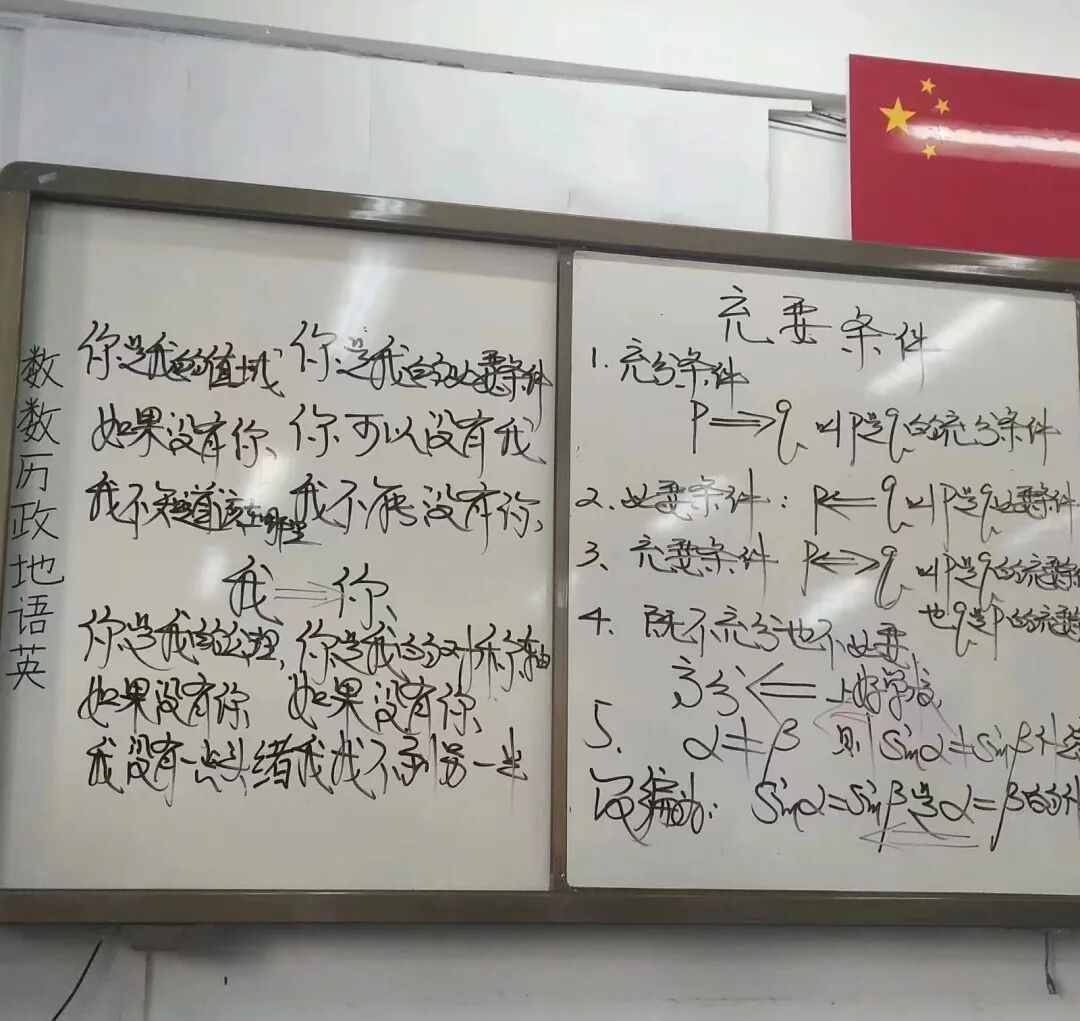 数
数
历
政
地
语
英
你是我的值域 你是我的必要条件
如果没有你、你可以没有我
我不知道该在哪里 我不能没有你、
我⇒你、
你是我的公理, 你是我的对称轴
如果没有你、 如果没有你、
我没有一点头绪 我找不到另一半
充要条件
1. 充分条件
P⇒q 叫P是q的充分条件
2. 必要条件: P⇐q 叫P是q必要条件
3、充要条件 P⇔q 叫P是q的充要条
也q是P的充要
4. 既不充分也不必要
充分 ⇐ 上好学校
5. α≠β 则 sinα≠sinβ什么
改编为: sinα=sinβ是α=β的什